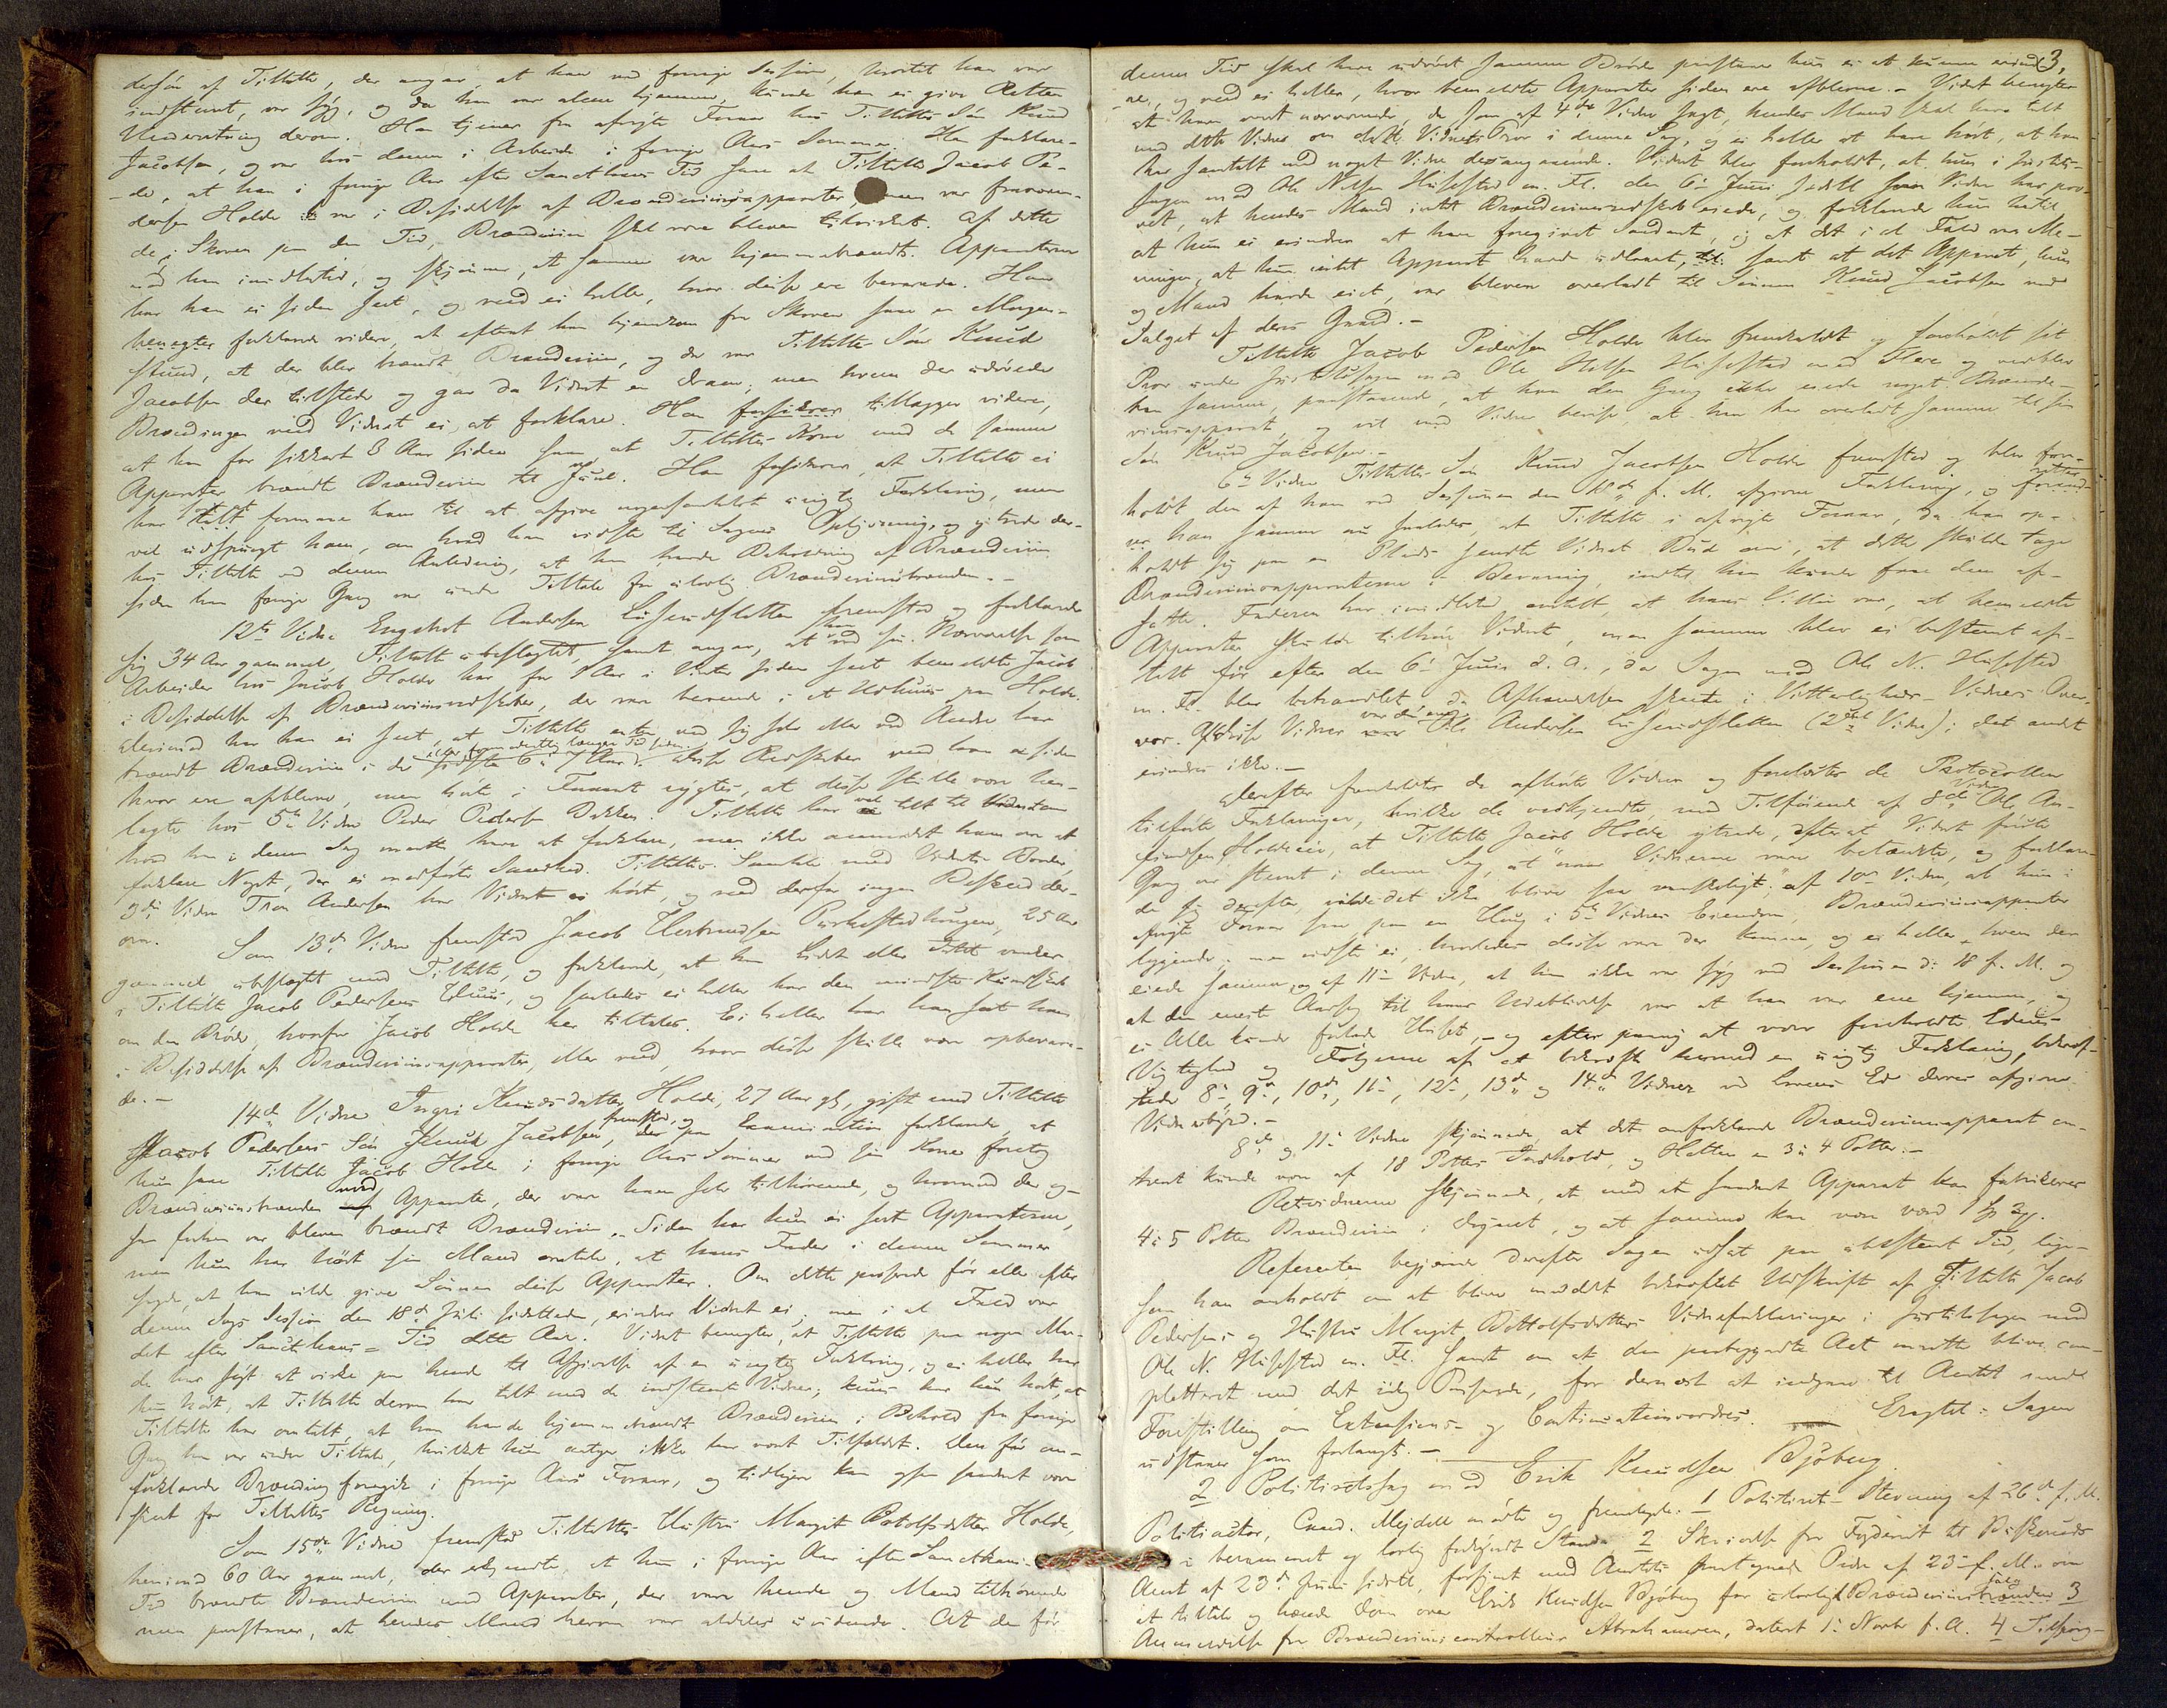 dersøn af Tiltalte, der angav, at han ved forrige Session, hvortil han var
indstævnt, var syg, og da han var alene hjemme, kunde han ei give Retten
Underretning derom. Han tjener fra afvigte Foraar hos Tiltaltes Søn Knud
Jacobsen, og var hos denne i Arbeide i forrige Aars Sommer. Han forklare-
de, at han i forrige Aar efter Sancthans Tid saae at Tiltalte Jacob Pe-
dersen Holde var i Besiddelse af Brændeviinsapparater, men var fraværen-
de i Skoven paa den Tid, Brændeviin skal være bleven tilvirket. Af dette
nød han imidlertid, og skjønner, at samme var hjemmebrændt. Apparaterne
har han ei siden seet, og veed ei heller, hvor disse ere bevarede. Han
benegter forklarede videre, at efterat han hjemkom fra Skoven saae en Morgen-
stund, at der blev brændt Brændeviin, og da var Tiltaltes Søn Knud
Jacobsen der tilstede og gav da Vidnet en Dram; men hvem der udøvede
Brændingen veed Vidnet ei at forklare. Han forsikrer tillægger videre,
at han for sikkert 3 Aar siden saae at Tiltaltes Kone med de samme
Apparater brændte Brændeviin til Juul. Han forsikrer, at Tiltalte ei
har søgt formaae ham til at afgive nogensomhelst urigtig Forklaring, men
vel udspurgt ham, om hvad han vidste til Sagens Oplysning, og yttrede der-
hos Tiltalte ved denne Anledning, at han havde Beholdning af Brændeviin
siden han forrige Gang var under Tiltale for ulovlig Brændeviinsbrænden. –
12te Vidne Engebret Andersen Lusendsletten fremstod og forklarede
sig 34 Aar gammel, Tiltalte ubeslægtet samt angav, at han ved sin Nærværelse som
Arbeider hos Jacob Holde har for 1 Aar i Vinter siden seet bemeldte Jacob
i Besiddelse af Brændeviinsredskaber, der var bevarede i et Udhuus paa Holde.
Derimod har han ei seet, at Tiltalte enten ved sig selv eller ved Andre har
eller formodentlig længere Tid siden
brændt Brændeviin i de sidste 6 à 7 Aar. Disse Redskaber veed han ei siden
hvor ere afblevne, men hørte i Foraaret rygtes, at disse skulle være hen-
lagte hos 5te Vidne Peder Pedersen Bakken. Tiltalte har vel talt til Vidnet om
hvad han i denne Sag maatte have at forklare, men ikke anmodet ham om at
forklare Noget, der ei medførte Sandhed. Tiltaltes Samtale med Vidnets Broder,
3die Vidne Tron Andersen har Vidnet ei hørt, og veed derfor ingen Besked der-
om.
Som 13de Vidne fremstod Jacob Herbrandsen Pukestadhaugen, 25 Aar
gammel ubeslægtet med Tiltalte, og forklarede, at han Lidet eller Intet vanker
i Tiltalte Jacob Pedersens Huus, og saaledes ei heller har den mindste Kundskab
om den Brøde, hvorfor Jacob Holde her tiltales. Ei heller har han seet ham
i Besiddelse af Brændeviinsapparater, eller veed, hvor disse skulle være opbevare-
de. –
14de Vidne Ingri Knudsdatter Holde, 27 Aar gl, gift med Tiltalte
Jacob Pedersens Søn Knud Jacobsen, fremstod og der paa Examination forklarede, at
hun saae Tiltalte Jacob Holde i forrige Aars Sommer ved sin Kone foretog
Brændeviinsbrænden med Apparater, der var ham selv tilhørende, og hvormed der og-
saa forhen var bleven brændt Brændeviin. Siden har hun ei seet Apparaterne,
men hun har hørt sin Mand omtale, at hans Fader i denne Sommer
sagde, at han vilde give Sønnen disse Apparater. Om dette passerede før eller efter
denne Sags Session den 18de Juli sidstleden, erindrer Vidnet ei; men i al Fald var
det efter Sancthans-Tid dette Aar. Vidnet benegter, at Tiltalte paa nogen Maa-
de har søgt at virke paa hende til Afgivelse af en urigtig Forklaring, og ei heller har
hun hørt, at Tiltalte derom har talt med de indstævnte Vidner; kuns har hun hørt, at
Tiltalte har omtalt, at han havde hjemmebrændt Brændeviin i Behold fra forrige
Gang han var under Tiltale, hvilket hun antager ikke har været Tilfældet. Den før om-
forklarede Brænding foregik i forrige Aars Foraar, og tidligere kan ogsaa saadant være
skeet for Tiltaltes Regning.
Som 15de Vidne fremstod Tiltaltes Hustru Margit Botolfsdatter Holde,
henimod 60 Aar gammel, der erkjendte, at hun i forrige Aar efter Sancthans-
Tid brændte Brændeviin med Apparater, der vare hende og Mand tilhørende
men paastaaer, at hendes Mand herom var aldeles uvidende. At de før
3,
denne Tid skal have udøvet samme Brøde paastaaer hun ei at kunne erind-
re, og veed ei heller, hvor bemeldte Apparater siden ere afblevne. – Vidnet benegter
at have været nærværende, da som af 4de Vidne sagt, hendes Mand skal have talt
med dette Vidne om dette Vidnets Prov i denne Sag, og ei heller at have hørt, at han
har samtalt med noget Vidne desangaaende. Vidnet blev foreholdt, at hun i Justits-
sagen mod Ole Nilsen Husestad m. Fl. den 6te Juni sidstl. som Vidne har prov-
vet, at hendes Mand intet Brændeviinsredskab eiede, og forklarede hun hertil
at hun ei erindrer at have foregivet saadant, og at det i al Fald var Me-
ningen, at hun intet Apparat havde udlaant, samt at det Apparat, hun
og Mand havde eiet, var bleven overladt til Sønnen Knud Jacobsen ved
Salget af deres Gaard. –
Tiltalte Jacob Pedersen Holde blev fremkaldt og foreholdt sit
Prov under Justitssagen mod Ole Nilsen Husestad med Flere og vedblev
han samme, paastaaende, at han den Gang ikke eiede noget Brænde-
viinsapparat og vil med Vidner bevise, at han har overladt samme til sin
Søn Knud Jacobsen. –
6te Vidne Tiltaltes Søn Knud Jacobsen Holde fremstod og blev fore-
holdt den af ham ved Sessionen den 18de f. M. afgivne Forklaring, og
han samme nu saaledes, at Tiltalte i afvigte Foraar, da han op-
holdt sig paa en Plads sendte Vidnet Bud om, at dette skulde tage
Brændeviinsapparaterne i Bevaring, indtil han kunde faae dem af-
satte. Faderen har imidlertid omtalt, at hans Villie var, at bemeldte
Apparater skulde tilhøre Vidnet, men samme blev ei bestemt af-
talt før efter den 6te Juni d. A., da Sagen mod Ole N. Husestad
m. Fl. blev behandlet, da Afhandelsen skeete i Vitterligheds-Vidners Over-
vær. Af disse Vidner var den ene Ole Andersen Lusendsletten (2det Vidne); det andet
erindres ikke. –
Derefter fremkaldtes de afhørte Vidner og forelæstes de Protocollen
tilførte Forklaringer, hvilke de vedkjendte, med Tilføiende af 8de Vidne Ole An-
findsen Holdeeie, at Tiltalte Jacob Holde yttrede, efterat Vidnet første
Gang var stævnt i denne Sag, at "naar Vidnerne vare betænkte, og forklare-
de sig derefter, vilde det ikke blive saa vanskeligt"; af 10de Vidne, at hun i
afvigte Foraar saae paa en Haug i 5te Vidnes Eiendom, Brændeviinsapparater
liggende; men vidste ei, hvorledes disse vare der komne, og ei heller, hvem der
eiede samme, og af 11te Vidne, at han ikke var syg ved Sessionen d: 18 f. M. og
at den eneste Aarsag til hans Udeblivelse var at han var ene hjemme, og
ei Alle kunde forlade Huset, – og efter paany at være foreholdte Edens
Vigtighed og Følgerne af at bekræfte hermed en urigtig Forklaring, bekræf-
tede 8de, 9de, 10de, 11te, 12te, 13de og 14de Vidner ved Lovens Ed deres afgivne
Vidnesbyrd. –
8de og 11te Vidne skjønnede, at det omforklarede Brændeviinsapparat om-
trent kunde være af 18 Potters Indhold, og Hatten en 3 à 4 Potter. –
Retsvidnerne skjønnede, at med et saadant Apparat kan fabrikeres
4 à 5 Potter Brændeviin i Døgnet, og at samme kan være værd
Referenten begjærede derefter Sagen udsat paa ubestemt Tid, lige-
som han anholdt om at blive meddelt bekræftet Udskrift af Tiltalte Jacob
Pedersens og Hustru Margit Bottolfsdatters Vidneforklaringer i Justitssagen mod
Ole N. Husestad m. Fl. samt om at den paabegyndte Act maatte blive com-
pletteret med det idag Passerede, for dernæst at indgaae til Amtet med
Forestilling om Extensions- og Continuationsordre. Eragtet: Sagen
udstaaer som forlangt. –
2 Politiretssag mod Erik Knudsen Bjøberg.
Politiactor, Cand. Mejdell mødte og fremlagde. 1 Politiret-Stevning af 26de f. M.
i beramment og lovlig forkyndt Stand. 2 Skrivelse fra Fogderiet til Buskeruds
Amt af 23de Juni sidstl., forsynet med Amtets paategnede Ordre af 23de f. M. om
at tiltale og hænde Dom over Erik Knudsen Bjøberg for ulovligt Brændeviinssalg 3
Anmeldelse fra Brændeviinscontrolleur Abrahamsen, dateret 1te Novbr f. A. 4 Tilspørg-